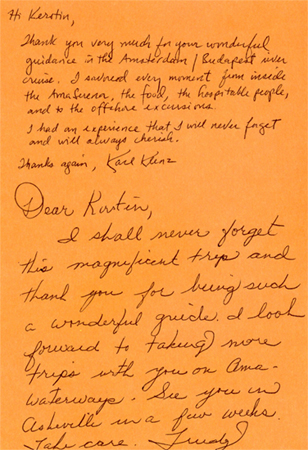 Hi Kerstin,
Thank you very much for your wonderful
guidance in the Amsterdam / Budapest river
cruise. I savored every moment from inside
the AmaSerena, the food, the hospitable people,
and to the offshore excursions.
I had an experience that I will never forget
and will always cherish.
Thanks again, Karl Klenz
Dear Kirstin,
I shall never forget
this magnificent trip and
thank you for being such
a wonderful guide. I look
forward to taking more
trips with you on Ama-
Waterways. See you in
Asheville in a few weeks.
Take care. Trudy